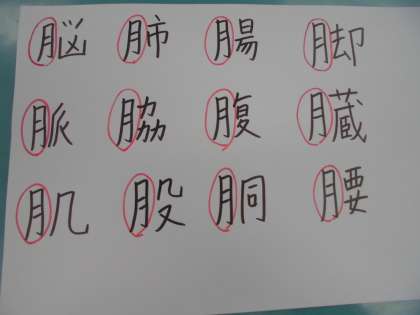 脳 肺 腸 脚
脈 脇 腹 臓
肌 股 胴 腰